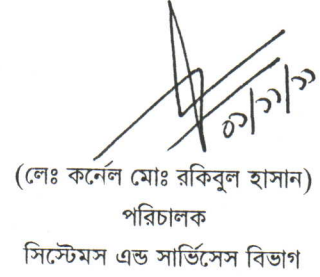 ০১/১১/১১
(লেঃ কর্নেল মোঃ রকিবুল হাসান)
পরিচালক
সিস্টেমস এন্ড সার্ভিসেস বিভাগ